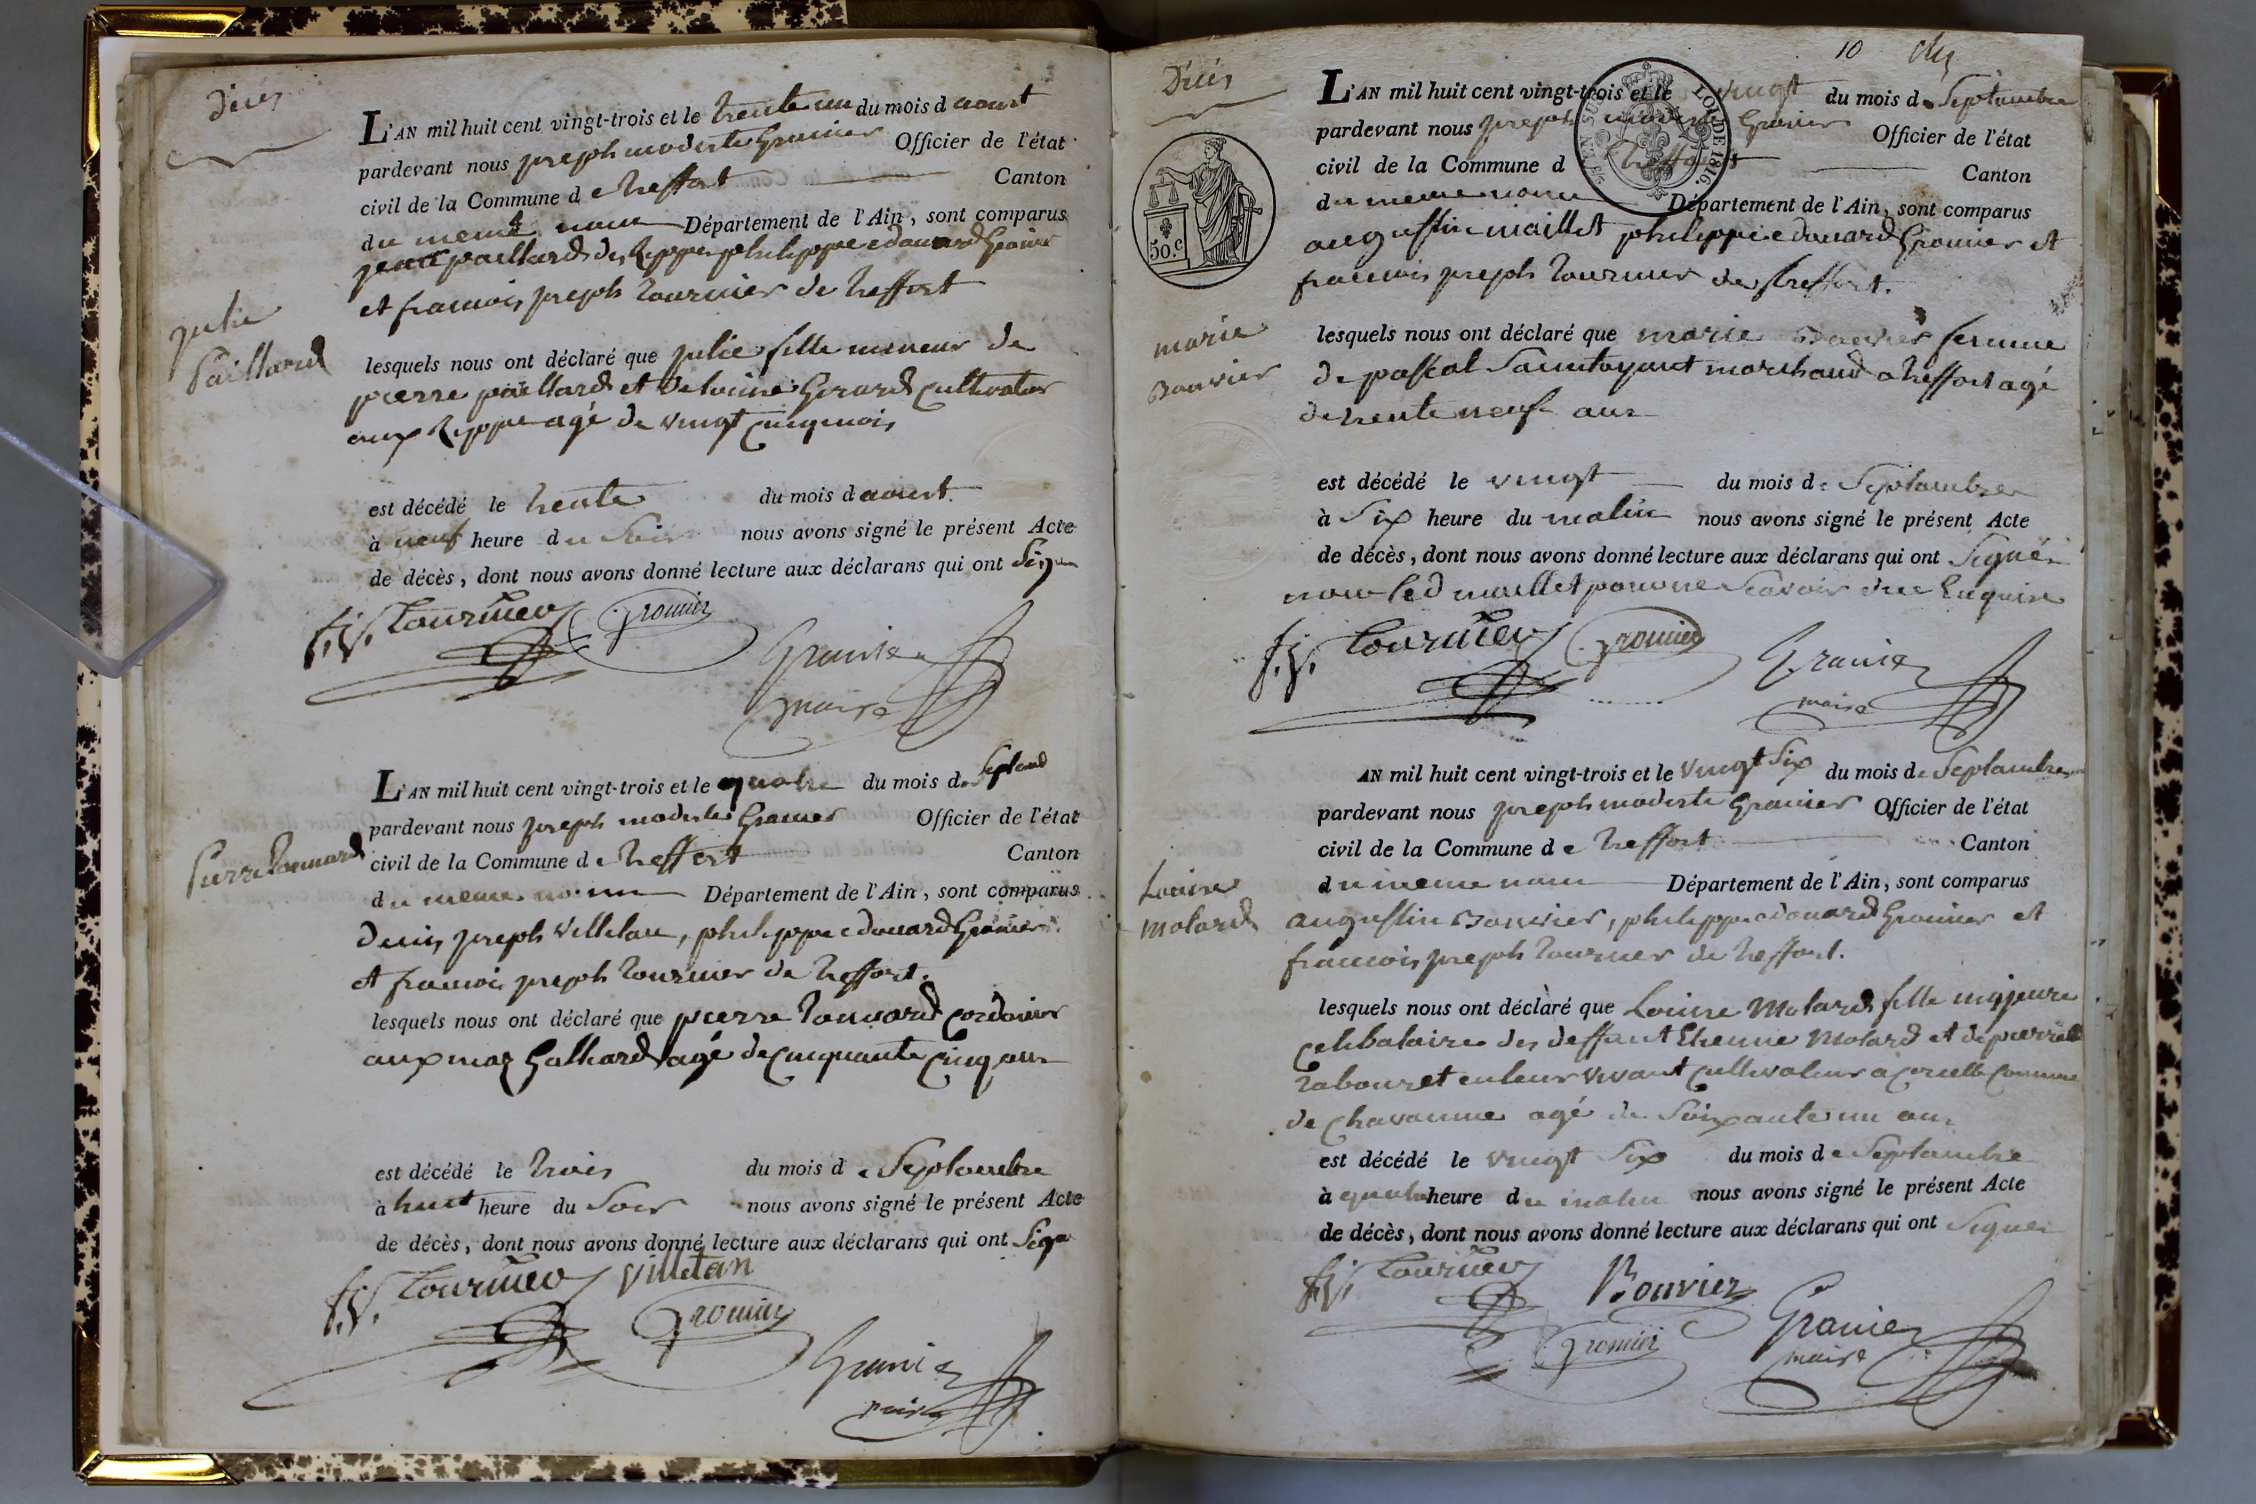 Décès
L'AN mil huit cent vingt-trois et le trente un du mois d aoust
pardevant nous joseph modeste Granier Officier de l'état
civil de la Commune de treffort Canton
du meme nom Département de l'Ain, sont comparus
jean paillard des Rippes philippe edouard Gromier
et francois joseph tournier de treffort
julie
Paillard
lesquels nous ont déclaré que julie fille mineur de
pierre paillard et de louise Girard cultivator
aux Rippe agé de vingt cinq mois
est décédé le trente du mois d aoust.
à neuf heure du Soir nous avons signé le présent Acte
de décès, dont nous avons donné lecture aux déclarans qui ont Signe
f.j. tournier Gromier
Granier
maire
L'AN mil huit cent vingt-trois et le quatre du mois de
pardevant nous joseph modeste Granier Officier de l'état
Pierre tonnard
civil de la Commune de treffort Canton
du meme nom Département de l'Ain, sont comparus
Denis joseph Villetan, philippe edouard Gromier
et francois joseph tournier de treffort.
lesquels nous ont déclaré que pierre tonnard cordonier
aux maz Galliard agé de cinquante cinq ans
est décédé le trois du mois de Septambre
à huit heure du Soir nous avons signé le présent Acte
de décès, dont nous avons donné lecture aux déclarans qui ont Signe
f.j. tournier Villetan
Gromier
Granier
maire
10 dix
Décès
L'AN mil huit cent vingt-trois et le vingt du mois de Septambre
pardevant nous joseph modeste Granier Officier de l'état
civil de la Commune d treffort Canton
du meme nom Département de l'Ain, sont comparus
augustin maillet philippe edouard Gromier et
francois joseph tournier de treffort.
LOI DE 1816.
50.c
marie
Bouvier
lesquels nous ont déclaré que marie Bouvier femme
de pascal Saintoyant marchand a treffort agé
de trente neuf ans
est décédé le vingt du mois de Septambre
à Six heure du matin nous avons signé le présent Acte
de décès, dont nous avons donné lecture aux déclarans qui ont Signés
non led maillet pour ne Savoir de ce Enquire
f.j. tournier Gromier Granier
maire
AN mil huit cent vingt-trois et le vingt Six du mois de Septambre
pardevant nous joseph modeste Granier Officier de l'état
civil de la Commune de treffort Canton
Louise
Molard
du meme nom Département de l'Ain, sont comparus
augustin Bouvier, philippe edouard Gromier et
francois joseph tournier de treffort.
lesquels nous ont déclaré que Louise Molard fille majeure
celibataire des deffunt Etienne Molard et de pierrette
tabouret en leur vivant cultivateur a corcelle Commune
de Chavanne agé de Soixante un ans
est décédé le vingt Six du mois de Septambre
à quatre heure du matin nous avons signé le présent Acte
de décès, dont nous avons donné lecture aux déclarans qui ont Signés
f.j. tournier Bouvier
Gromier Granier
maire